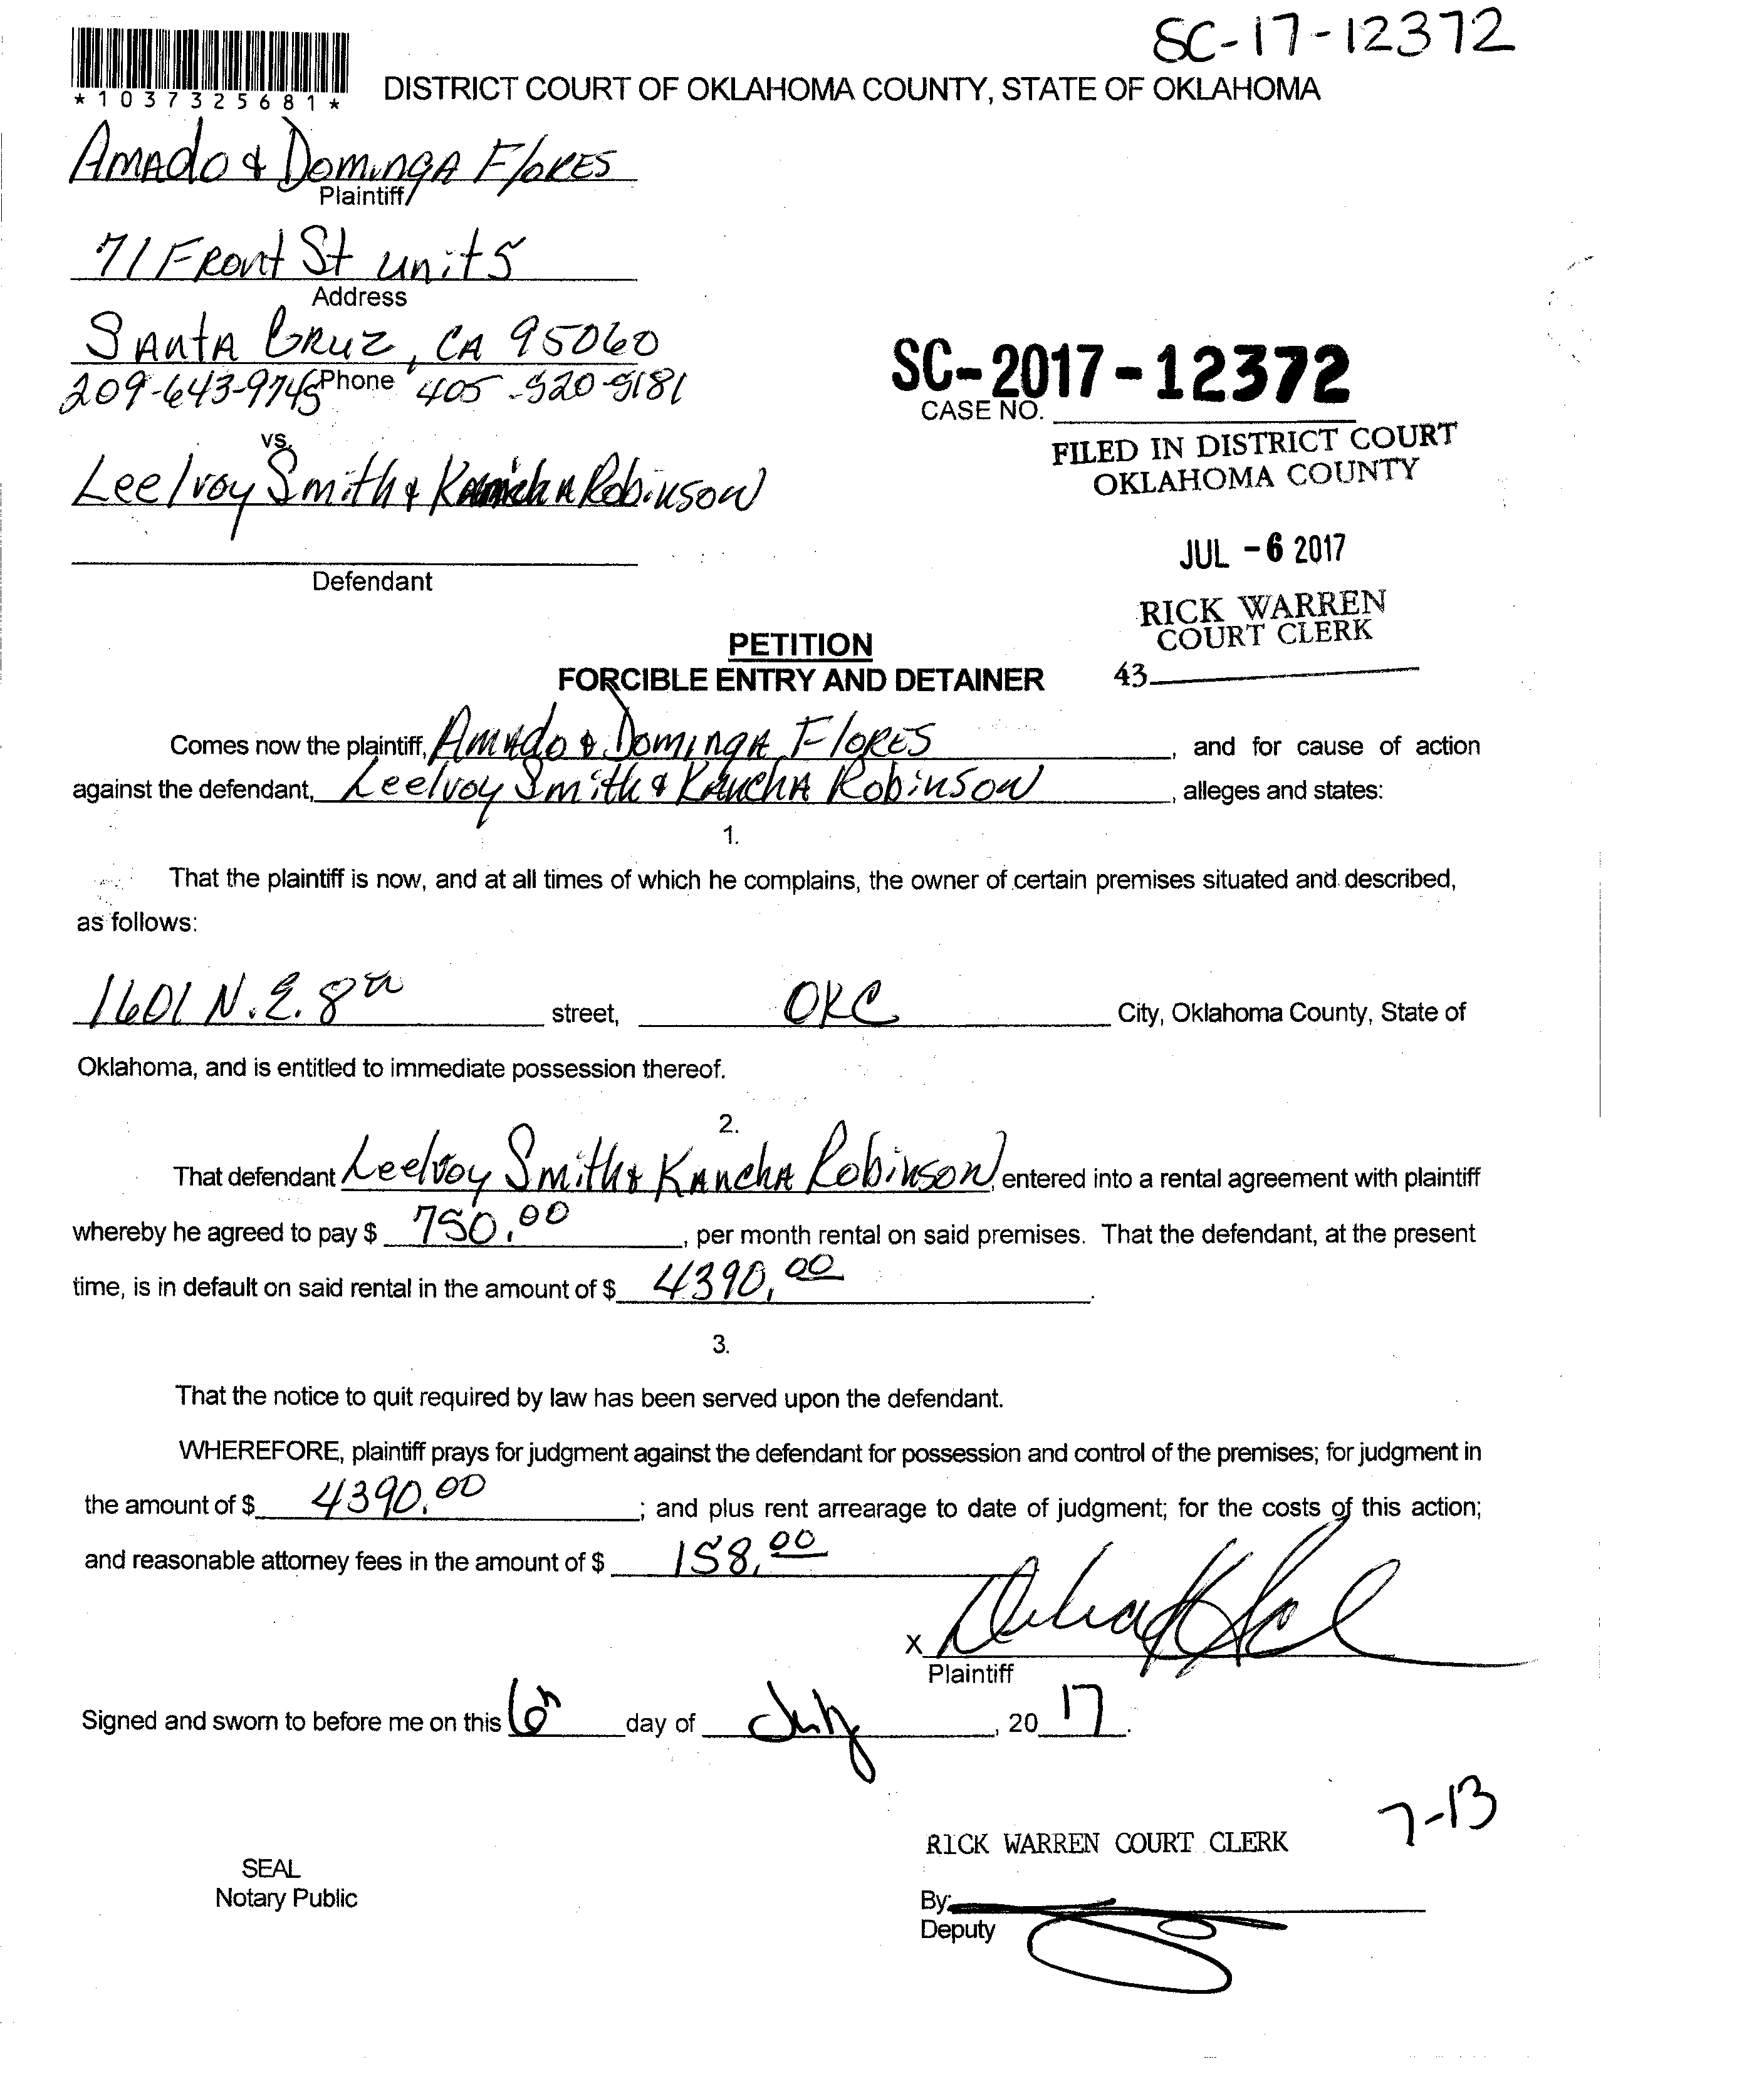 SC-17-12372
*1037325681*
DISTRICT COURT OF OKLAHOMA COUNTY, STATE OF OKLAHOMA
Amado & Dominga Flores
Plaintiff
71 Front St unit 5
Address
Santa Cruz, CA 95060
209-643-9745 Phone 405-520-5181
SC-2017-12372
CASE NO.
vs.
FILED IN DISTRICT COURT
OKLAHOMA COUNTY
Leelroy Smith & Robinson
JUL -6 2017
Defendant
RICK WARREN
COURT CLERK
PETITION
FORCIBLE ENTRY AND DETAINER
43
Comes now the plaintiff, Amado & Dominga Flores, and for cause of action
against the defendant, Leelroy Smith & Kancha Robinson, alleges and states:
1.
That the plaintiff is now, and at all times of which he complains, the owner of certain premises situated and described,
as follows:
1601 N.E. 8th street, OKC City, Oklahoma County, State of
Oklahoma, and is entitled to immediate possession thereof.
2.
That defendant Leelroy Smith & Kancha Robinson, entered into a rental agreement with plaintiff
whereby he agreed to pay $ 750.00, per month rental on said premises. That the defendant, at the present
time, is in default on said rental in the amount of $ 4390.00.
3.
That the notice to quit required by law has been served upon the defendant.
WHEREFORE, plaintiff prays for judgment against the defendant for possession and control of the premises; for judgment in
the amount of $ 4390.00; and plus rent arrearage to date of judgment; for the costs of this action;
and reasonable attorney fees in the amount of $ 158.00
X
Plaintiff
Signed and sworn to before me on this 6th day of July, 2017.
7-13
RICK WARREN COURT CLERK
SEAL
Notary Public
By:
Deputy